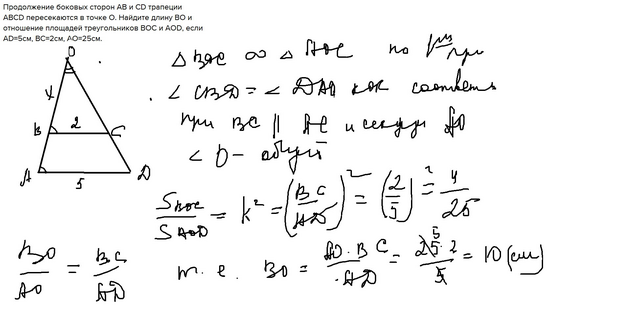 Продолжение боковых сторон АВ и CD трапеции
ABCD пересекаются в точке О. Найдите длину ВО и
отношение площадей треугольников ВОС и AOD, если
AD=5см, ВС=2см, АО=25см.
O
x
B 2 C
A 5 D
△ BOC ∞ △ AOC по
∠ CBD = ∠ DAO как соответв
при BC || AC и AO
∠ O -
S BOC / S AOD = k² = (BC / AD)² = (2/5)² = 4/25
BO / AO = BC / AD т.е. BO = AO · BC / AD = 25 · 2 / 5 = 10 (см)